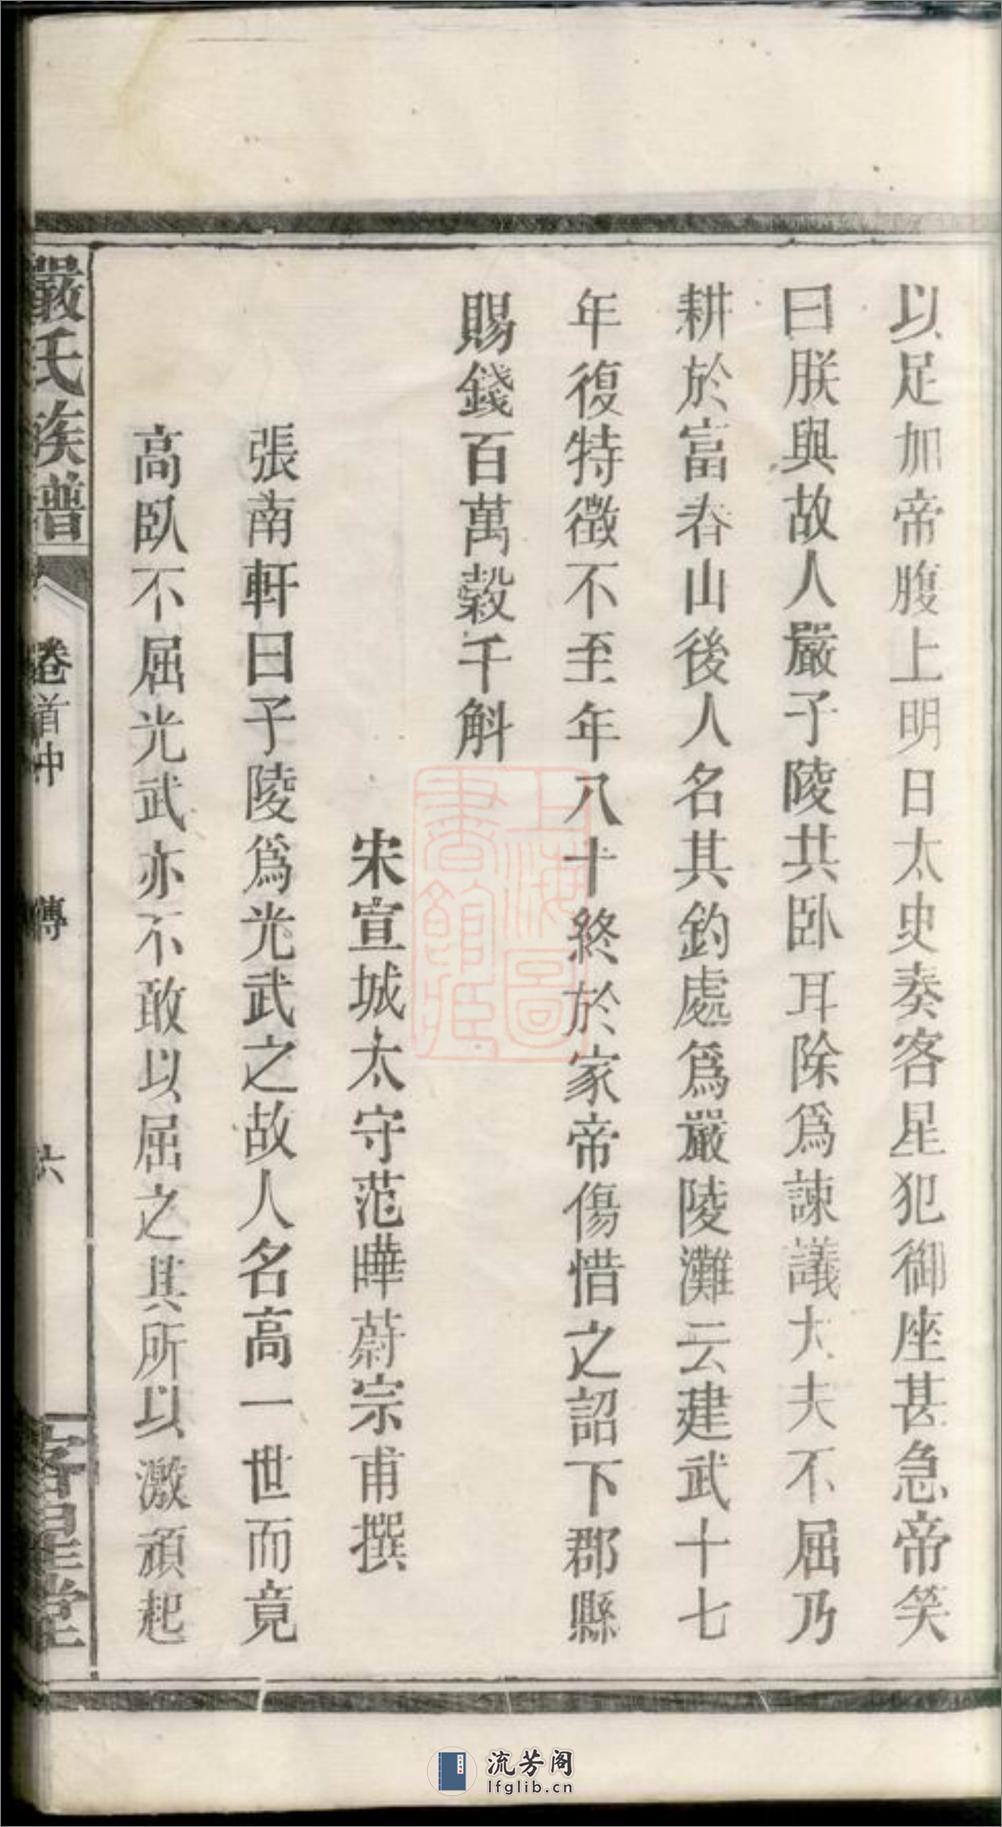 以足加帝腹上明日太史奏客星犯御座甚急帝笑
曰朕與故人嚴子陵共卧耳除爲諫議大夫不屈乃
耕於富春山後人名其釣處爲嚴陵灘云建武十七
年復特徵不至年八十終於家帝傷惜之詔下郡縣
賜錢百萬穀千斛
宋宣城太守范曄蔚宗甫撰
張南軒曰子陵爲光武之故人名高一世而竟
高臥不屈光武亦不敢以屈之其所以激頑起
嚴氏族譜
卷首中
傳
六
客星堂
上海圖
書館藏
流芳阁
lfglib.cn